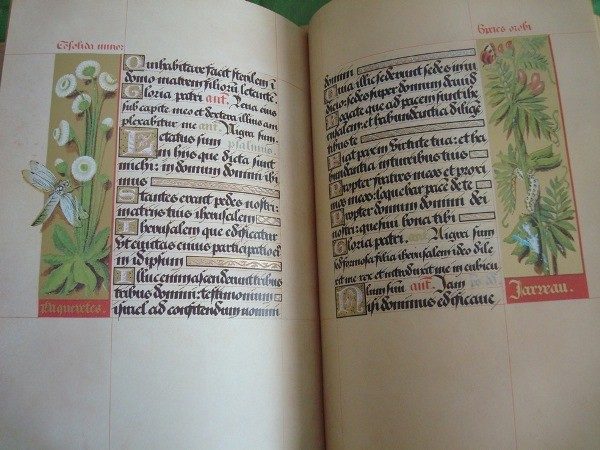 Cōsolida minor
Qui habitare facit sterilem ī
domo matrem filiorū letante.
Gloria patri ant. Leva eius
sub capite meo et dextera illius am
plexabitur me ant. Nigra sum
Letatus sum psalmus
in hijs que dicta sunt
michi: in domum domini ibi
mus
Stantes erant pedes nostri:
in atrijs tuis iherusalem
Iherusalem que edificatur
ut civitas cuius participatio ei9
in idipsum
Illuc enim ascenderunt tribus
tribus domini: testimonium
israel ad confitendum nomini
domini
Quia illic sederunt sedes in iu
dicio: sedes super domum david
Rogate que ad pacem sunt ihe
rusalem: et habundantia diligē
tibus te
Fiat pax in virtute tua: et ha
bundantia in turribus tuis
Propter fratres meos et proxi
mos meos: loquebar pacē de te
Propter domum domini dei
nostri: quesivi bona tibi
Gloria patri. Nigra sum
sed formosa filia iherusalem ideo dile
xit me rex et introduxit me in cubicu
lum suū ant. Jam
Nisi dominus edificave
Jarreau.